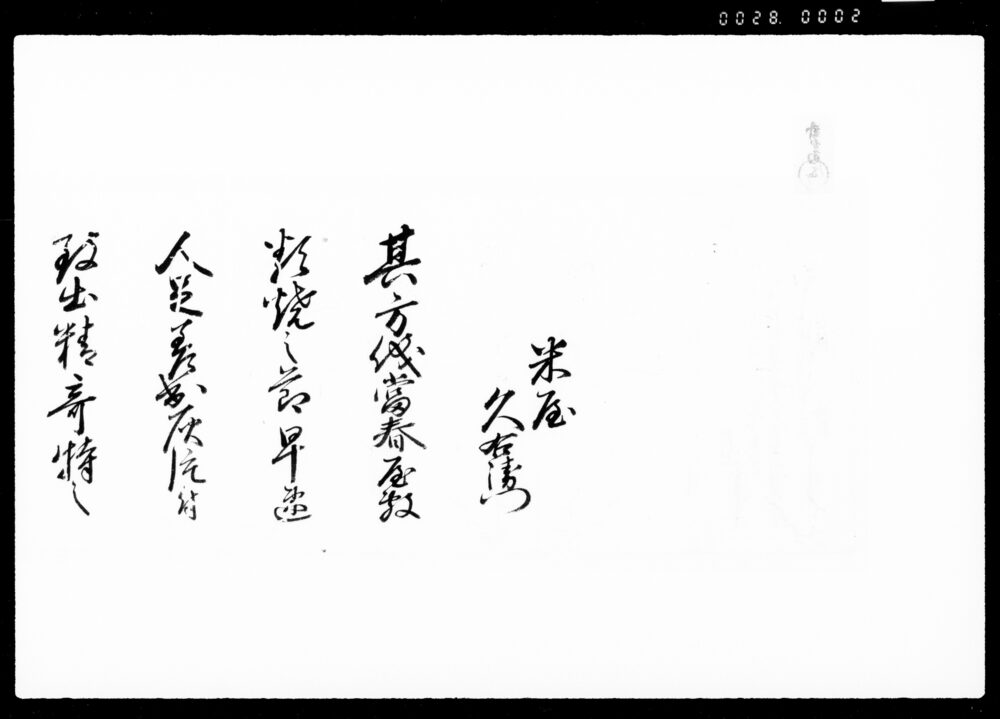 0028. 0002
米屋
久右衛門
其方儀當春屋敷
類焼之節早速
人足差出灰片付
致出精奇特之